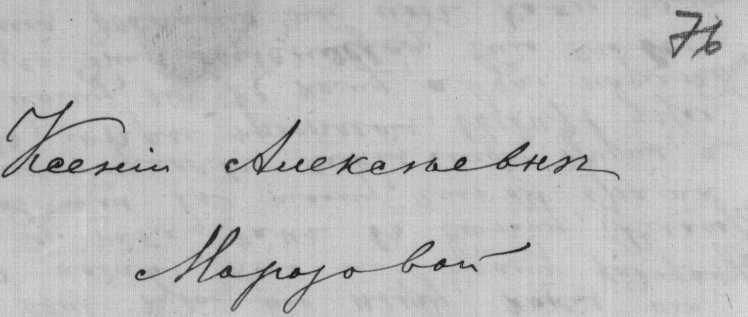 76
Ксенiи Алексѣевнѣ
Морозовой